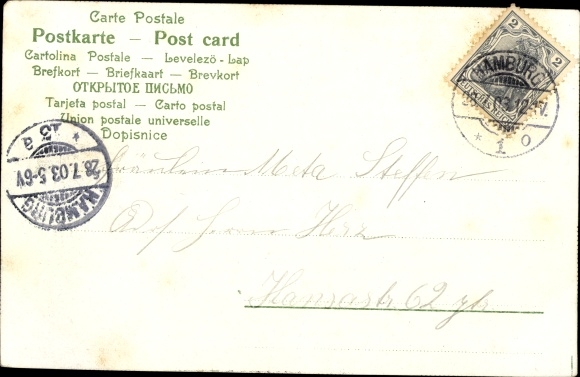 Carte Postale
Postkarte — Post card
Cartolina Postale — Levelező-Lap
Brefkort — Briefkaart — Brevkort
ОТКРЫТОЕ ПИСЬМО
Tarjeta postal — Carto postal
Union postale universelle
Dopisnice
2 2
HAMBURG
12-1V.
* 1 O
HAMBURG
28.7.03.5-6V
* 13 a
Fräulein Meta Steffen
Adr/ Herrn Herz
Hansastr. 62 ptr